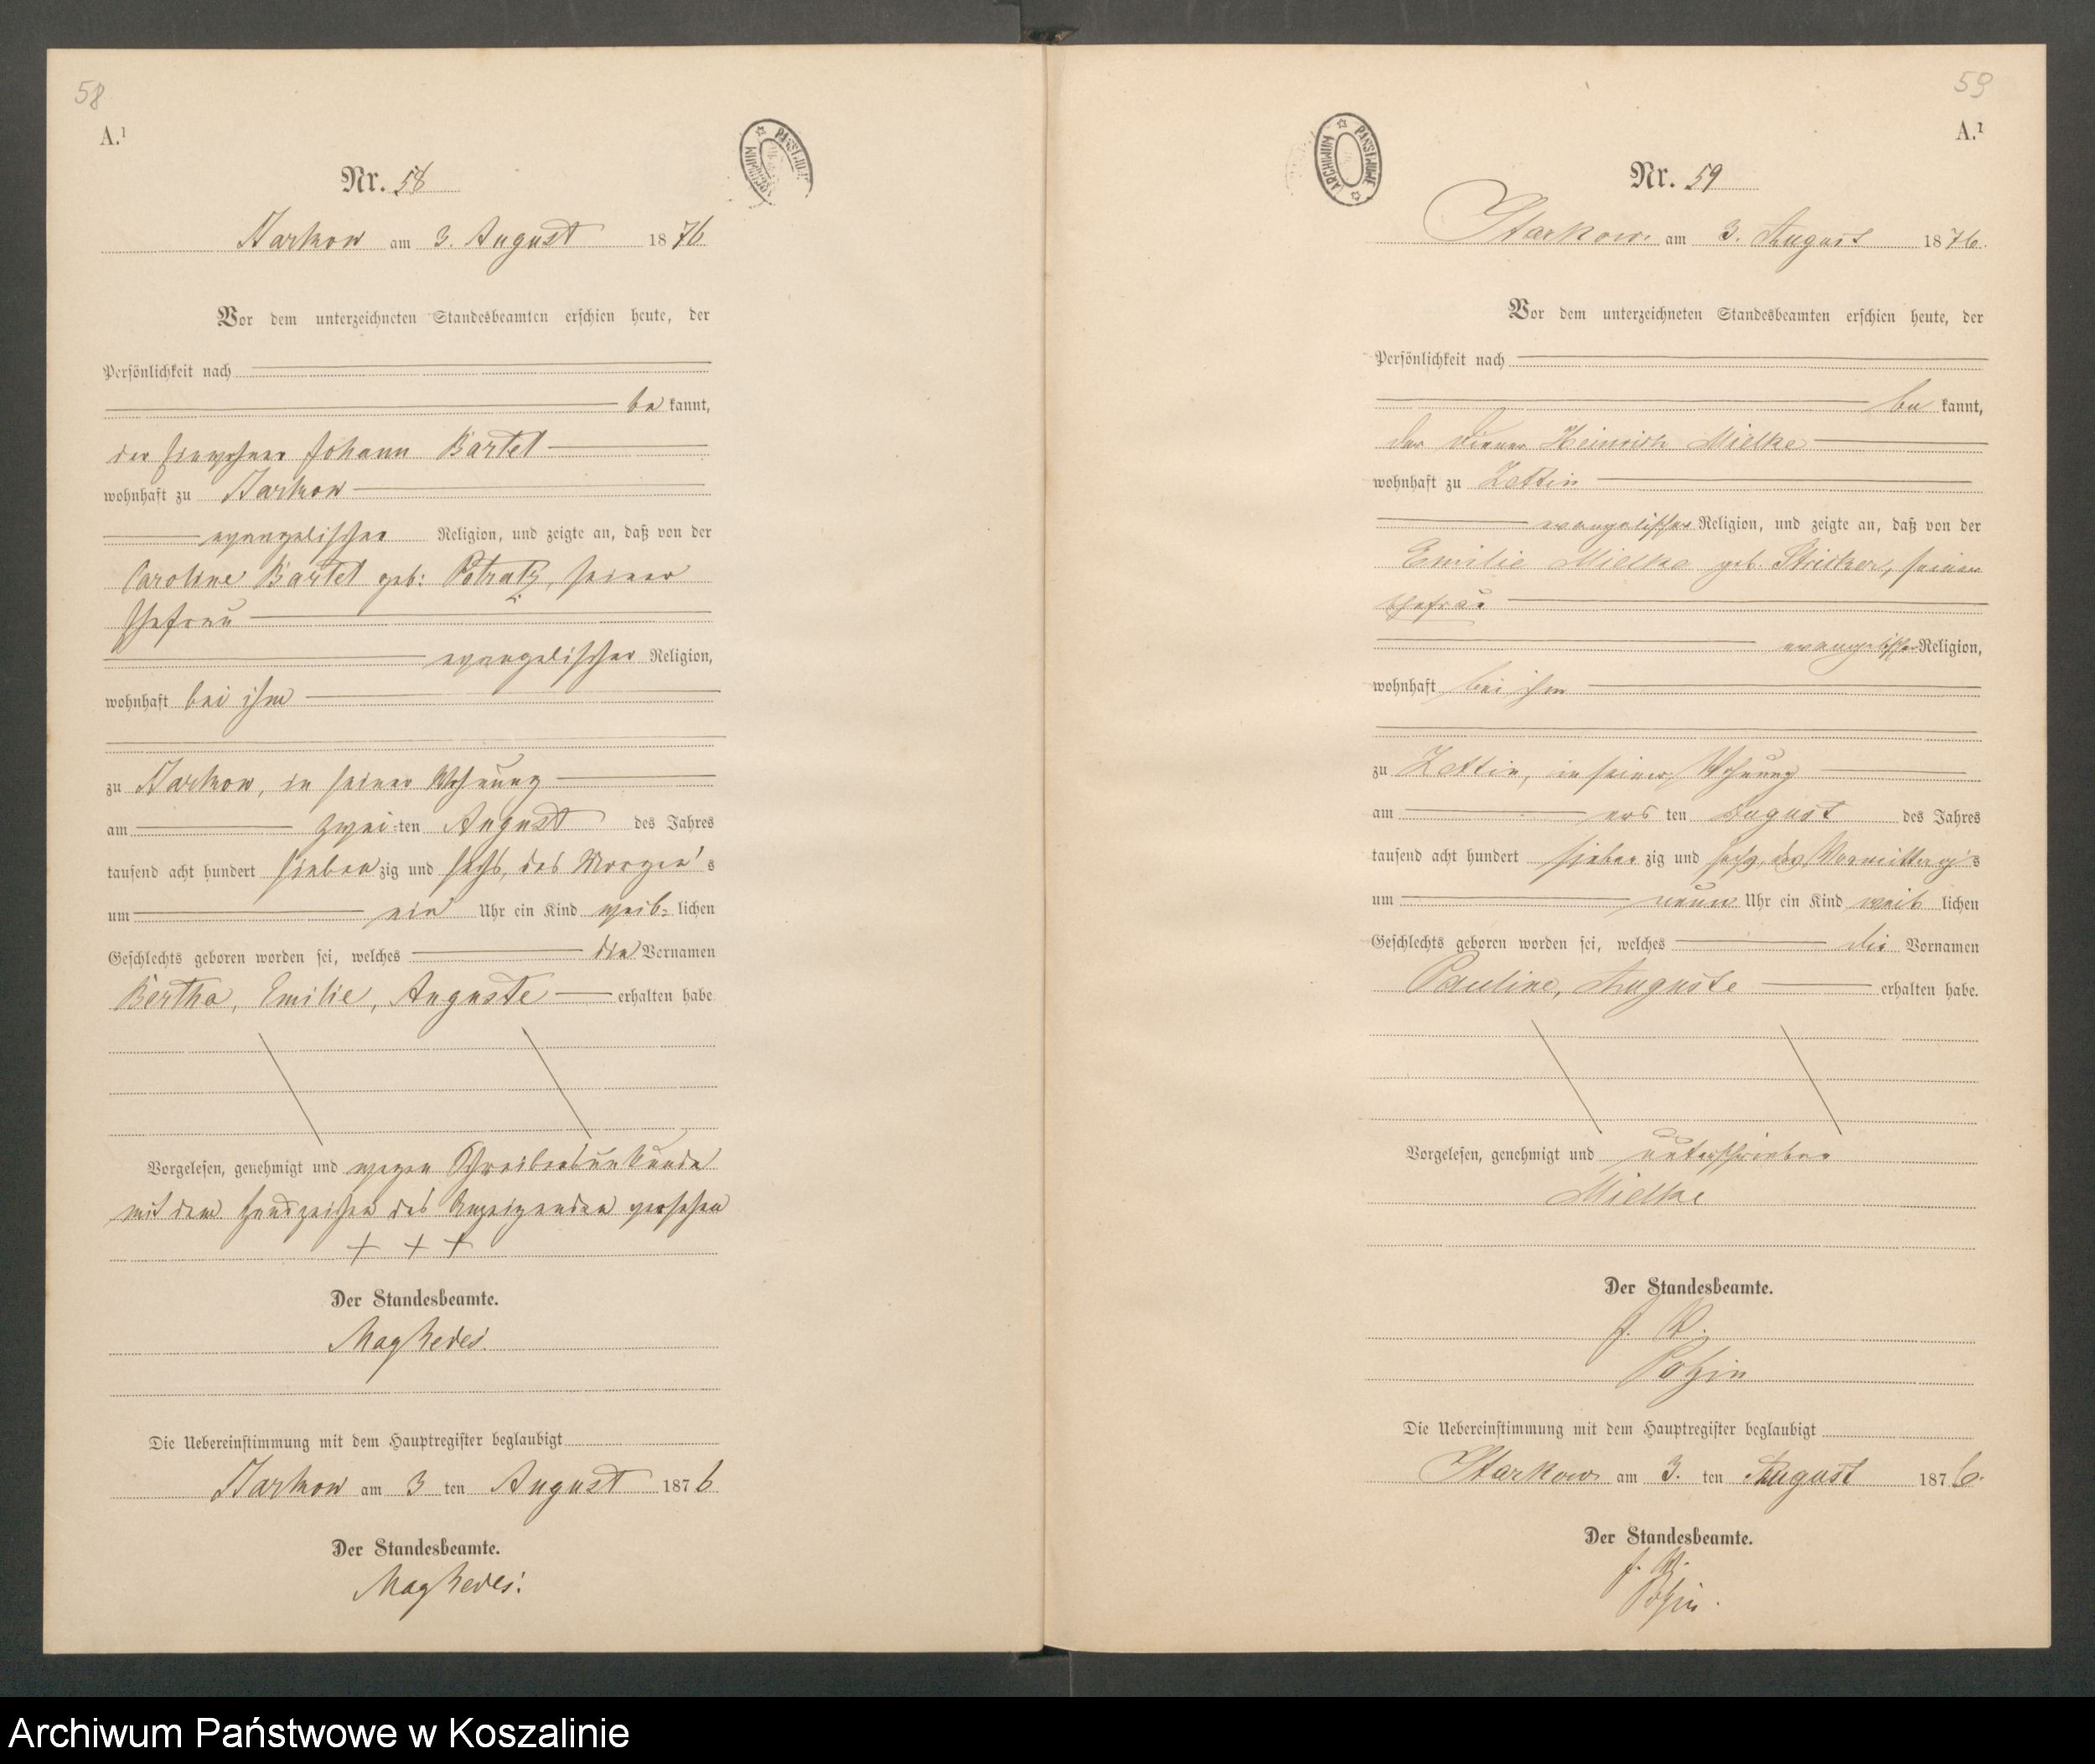 58
A.¹
Nr. 58
Starkow am 3. August 1876
Vor dem unterzeichneten Standesbeamten erschien heute, der
Persönlichkeit nach
be kannt,
der Einwohner Johann Bartel
wohnhaft zu Starkow
evangelischer Religion, und zeigte an, daß von der
Caroline Bartel geb: Potratz, seiner
Ehefrau
evangelischer Religion,
wohnhaft bei ihm
zu Starkow, in seiner Wohnung
am zwei-ten August des Jahres
tausend acht hundert siebenzig und sechs, des Morgen's
um ein Uhr ein Kind weib-lichen
Geschlechts geboren worden sei, welches die Vornamen
Bertha, Emilie, Auguste erhalten habe
Vorgelesen, genehmigt und wegen Schreibensunkunde
mit dem Handzeichen des Anzeigenden versehen
+ + +
Der Standesbeamte.
Die Uebereinstimmung mit dem Hauptregister beglaubigt
Starkow am 3 ten August 1876
Der Standesbeamte.
59
A.¹
ARCHIWUM PAŃSTWOWE
Nr. 59
Starkow am 3. August 1876.
Vor dem unterzeichneten Standesbeamten erschien heute, der
Persönlichkeit nach
be kannt,
der Diener Heinrich Mielke
wohnhaft zu Zettin
evangelischer Religion, und zeigte an, daß von der
Emilie Mielke geb. Stricker, seiner
Ehefrau
evangelischer Religion,
wohnhaft bei ihm
zu Zettin, in seiner Wohnung
am ers ten August des Jahres
tausend acht hundert sieben zig und sechs, des Vormittag's
um neun Uhr ein Kind weib lichen
Geschlechts geboren worden sei, welches die Vornamen
Pauline, Auguste erhalten habe.
Vorgelesen, genehmigt und unterschrieben
Mielke
Der Standesbeamte.
Die Uebereinstimmung mit dem Hauptregister beglaubigt
Starkow am 3. ten August 1876.
Der Standesbeamte.
Archiwum Państwowe w Koszalinie